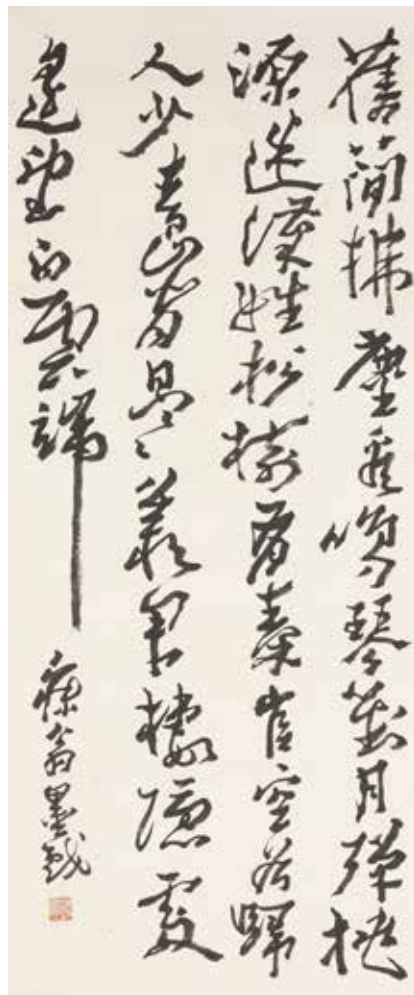 舊簡拂塵看鳴琴對月彈桃
源迷漢姓松樹有秦官空谷歸
人少青山背日寒羨君棲隱處
遙望白雲端
翁墨戲